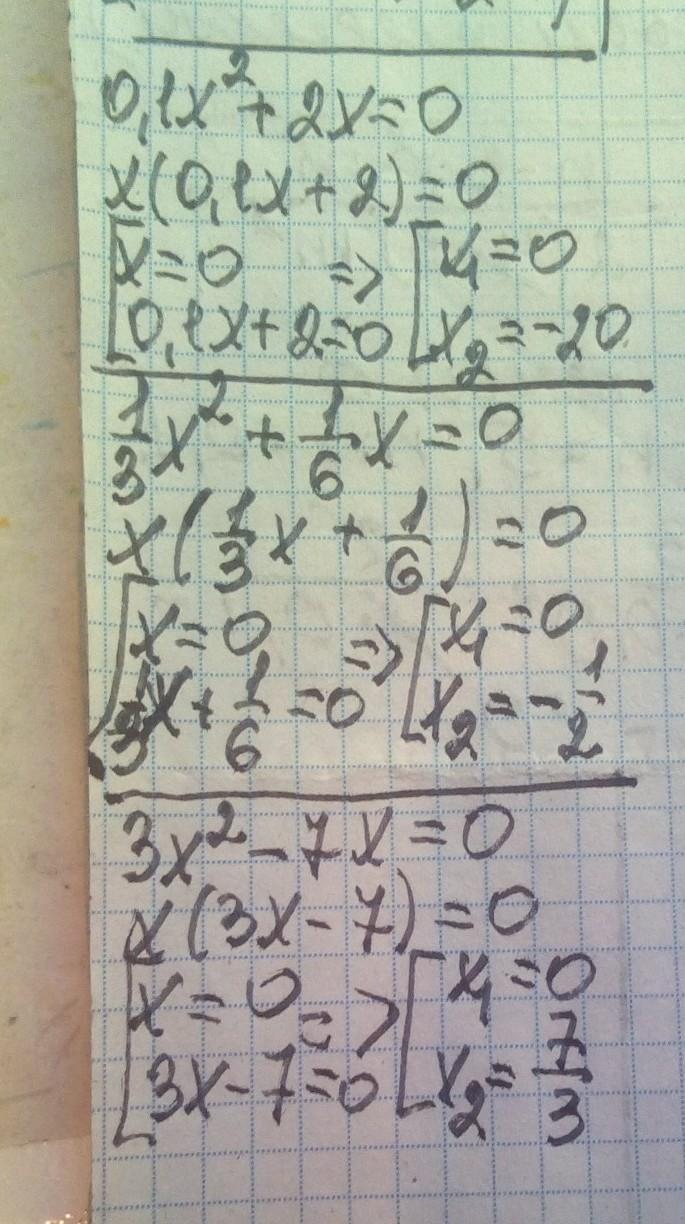 0,1x² + 2x = 0
x(0,1x + 2) = 0
[x = 0 => [x₁ = 0
0,1x + 2 = 0 x₂ = -20
1/3 x² + 1/6 x = 0
x(1/3 x + 1/6) = 0
[x = 0 => [x₁ = 0
1/3 x + 1/6 = 0 x₂ = -1/2
3x² - 7x = 0
x(3x - 7) = 0
[x = 0 => [x₁ = 0
3x - 7 = 0 x₂ = 7/3